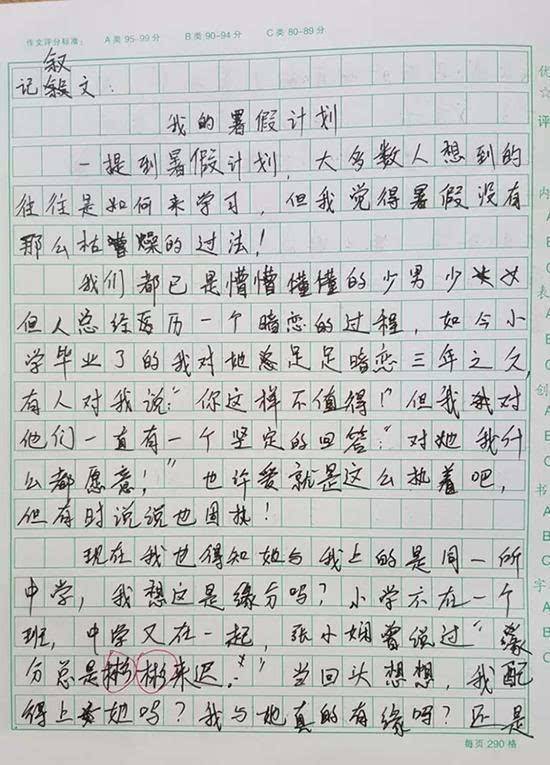 作文评分标准： A 类 95-99 分 B 类 90-94 分 C 类 80-89 分
叙
记 文：
我的暑假计划
一提到暑假计划，大多数人想到的
往往是如何来学习，但我觉得暑假没有
那么枯燥的过法！
我们都已是懵懵懂懂的少男少女
但人总经历一个暗恋的过程，如今小
学毕业了的我对她足足暗恋三年之久，
有人对我说：“你这样不值得！”但我对
他们一直有一个坚定的回答：“对她我什
么都愿意！”也许爱就是这么执着吧，
但有时说说也固执！
现在我也得知她与我上的是同一所
中学，我想这是缘分吗？小学不在一个
班，中学又在一起，张小娴曾说过“缘
分总是 来迟。”当回头想想，我配
得上她吗？我与她真的有缘吗？还是
每页 290 格
优
☆
评
内
A
B
C
表
A
B
C
创
A
B
C
书
A
B
C
字
A
B
C